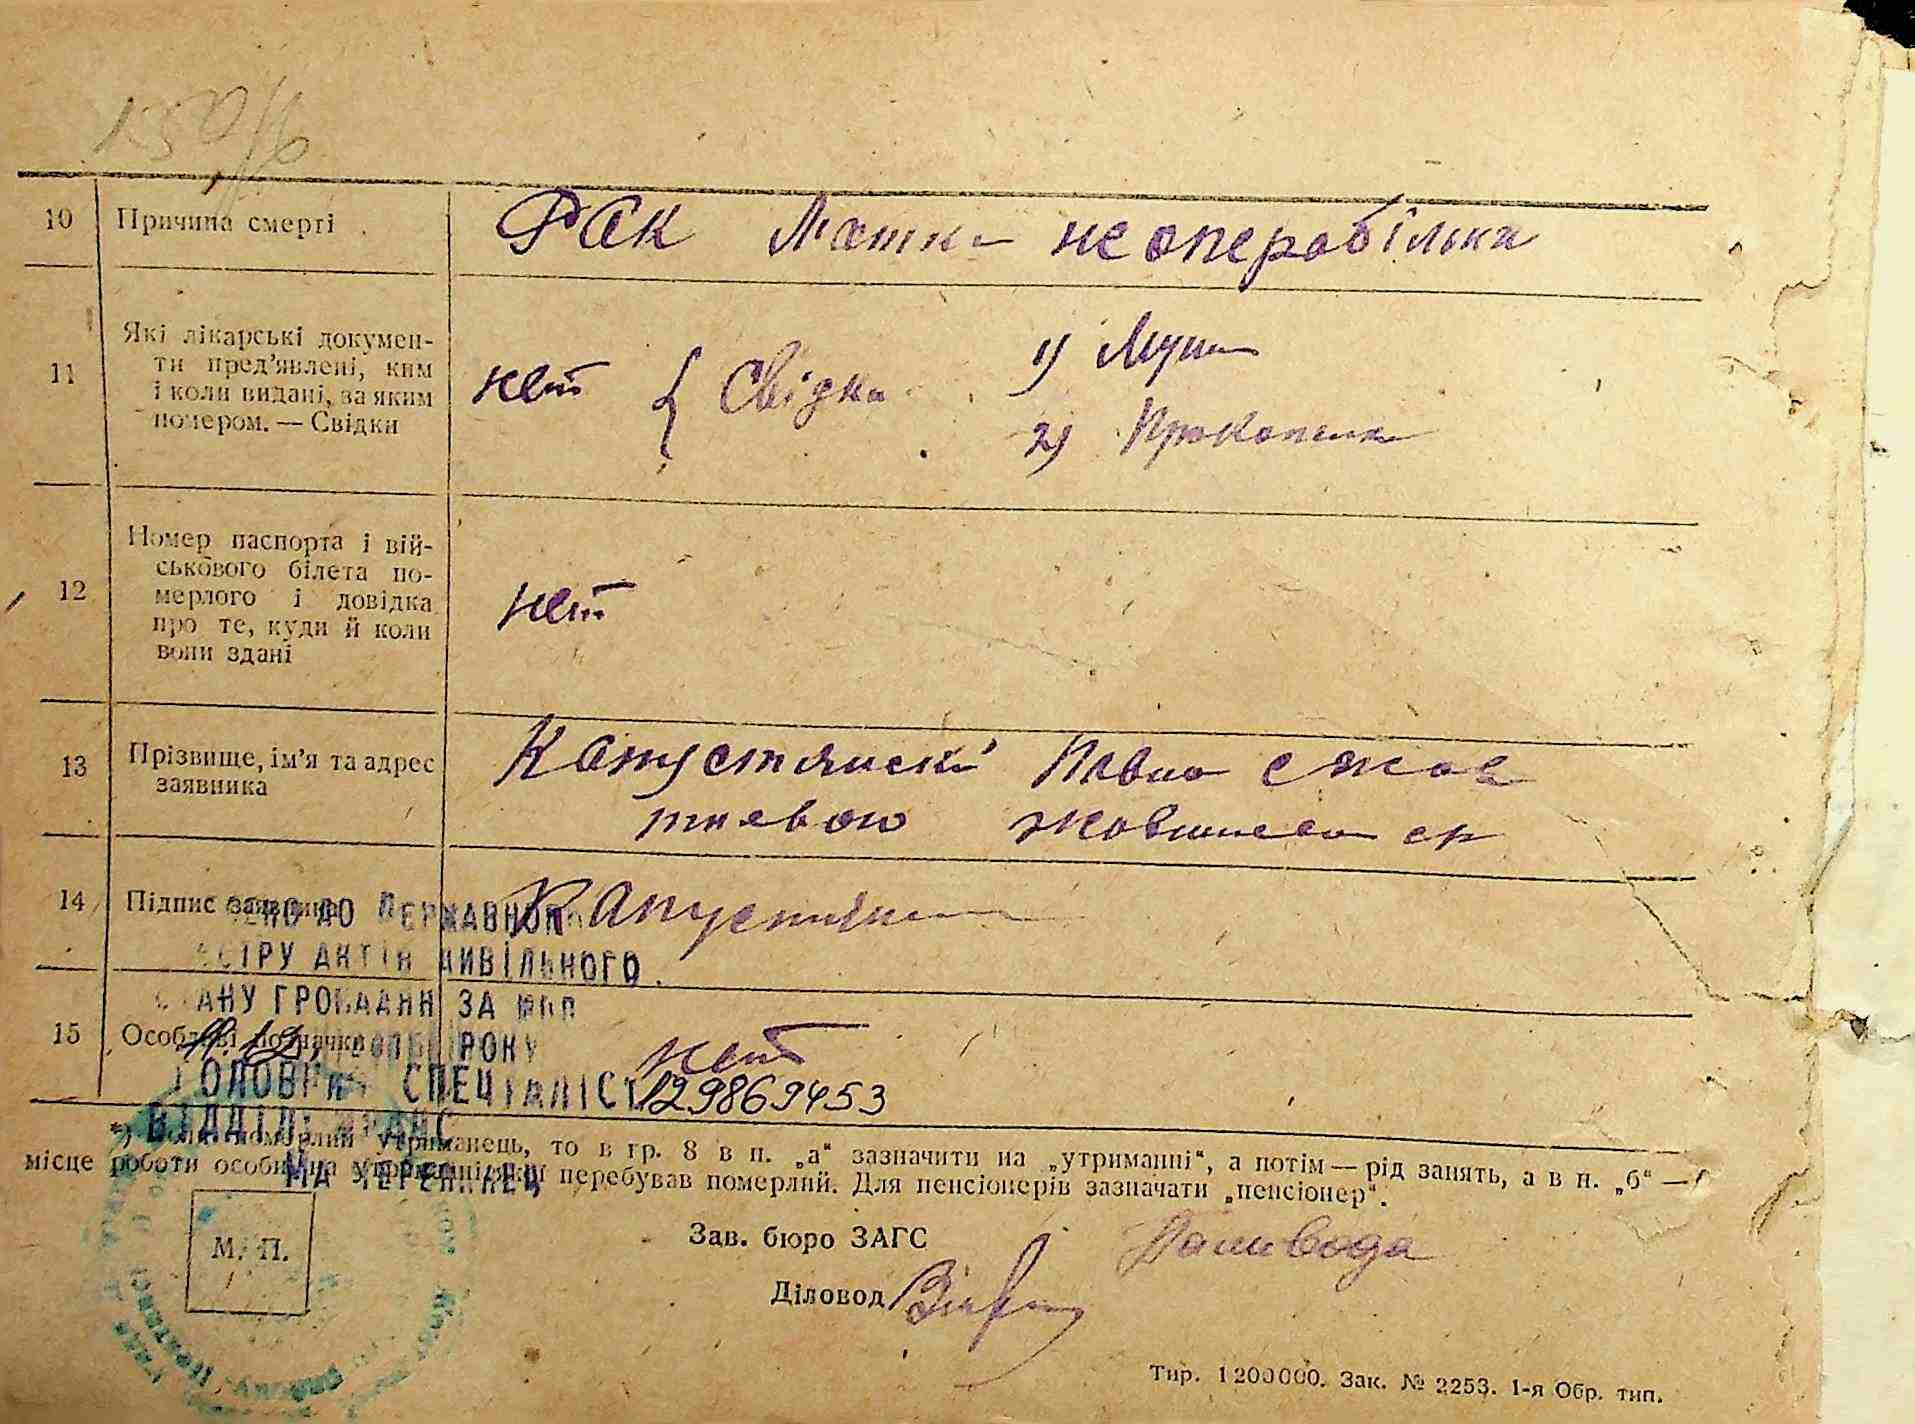 10 Причина смерті Рак Матки неоперабільна
11 Які лікарські докумен-
ти пред'явлені, ким
і коли видані, за яким
номером. — Свідки
нет { Свідки
1)
2) Прокопенко
12 Номер паспорта і вій-
ськового білета по-
мерлого і довідка
про те, куди й коли
вони здані
нет
13 Прізвище, ім'я та адрес
заявника
Капустянский
14 Підпис заявника
ДО ДЕРЖАВНОГО
ЕСТРУ АКТІВ ЦИВІЛЬНОГО
СТАНУ ГРОМАДЯН ЗА
РОКУ
15 Особливі позначки нет
ГОЛОВНИЙ СПЕЦІАЛІСТ 129869453
ВІДДІЛУ
*) Коли померлий утриманець, то в гр. 8 в п. „а“ зазначити на „утриманні“, а потім — рід занять, а в п. „б“ —
місце роботи особи, на утриманні якої перебував померлий. Для пенсіонерів зазначати „пенсіонер“.
М. П.
Зав. бюро ЗАГС Паливода
Діловод
Тир. 1200000. Зак. № 2253. 1-я Обр. тип.